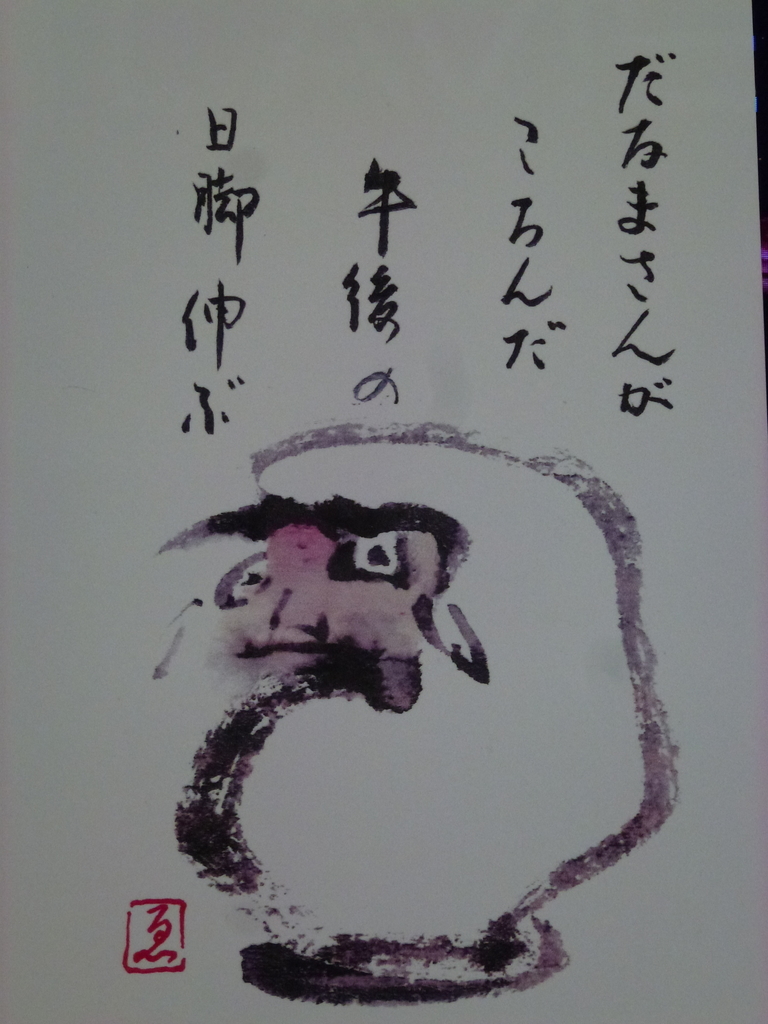 だるまさんが
ころんだ
午後の
日脚伸ぶ
ゑ